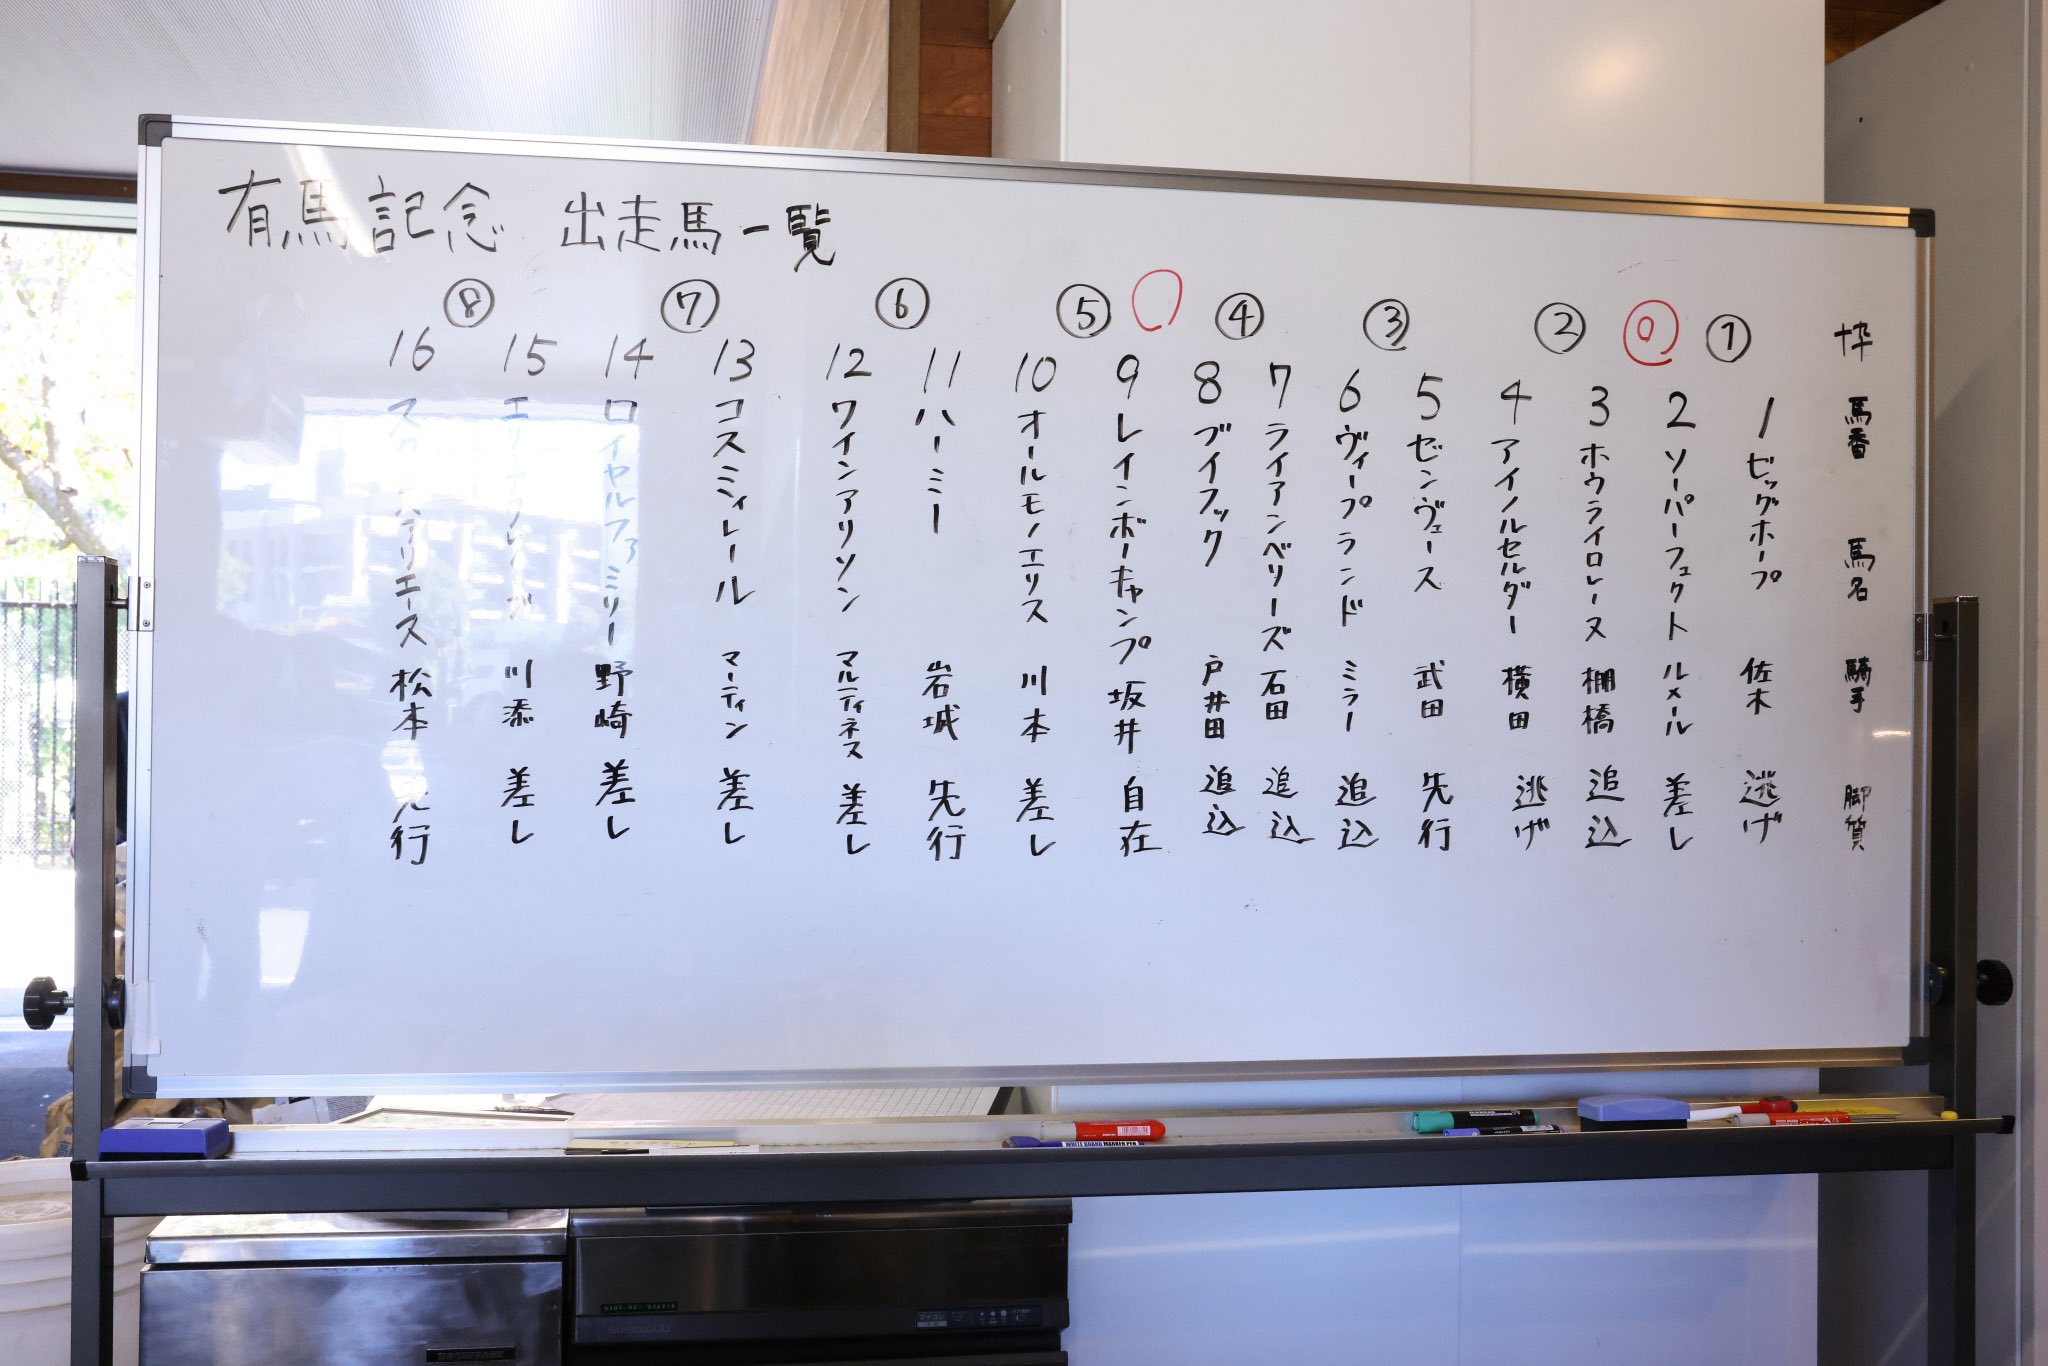 有馬記念 出走馬一覧
枠 馬番 馬名 騎手 脚質
①
1 ビッグホープ 佐木 逃げ
2 ソーパーフェクト ルメール 差し
②
3 ホウライロレーヌ 棚橋 追込
4 アイノルセルダー 横田 逃げ
③
5 ゼンヴェース 武田 先行
6 ヴィープランド ミラー 追込
④
7 ライアンベリーズ 石田 追込
8 ブイフック 戸井田 追込
⑤
9 レインボーキャンプ 坂井 自在
10 オールモノエリス 川本 差し
⑥
11 ハーミー 岩城 先行
12 ワインアリソン マルティネス 差し
⑦
13 コスミィレール マーティン 差し
14 ロイヤルファミリー 野崎 差し
⑧
15 川添 差し
16 松本 先行
WHITE BOARD MARKER PEN
HOSHIZAKI
マイコン